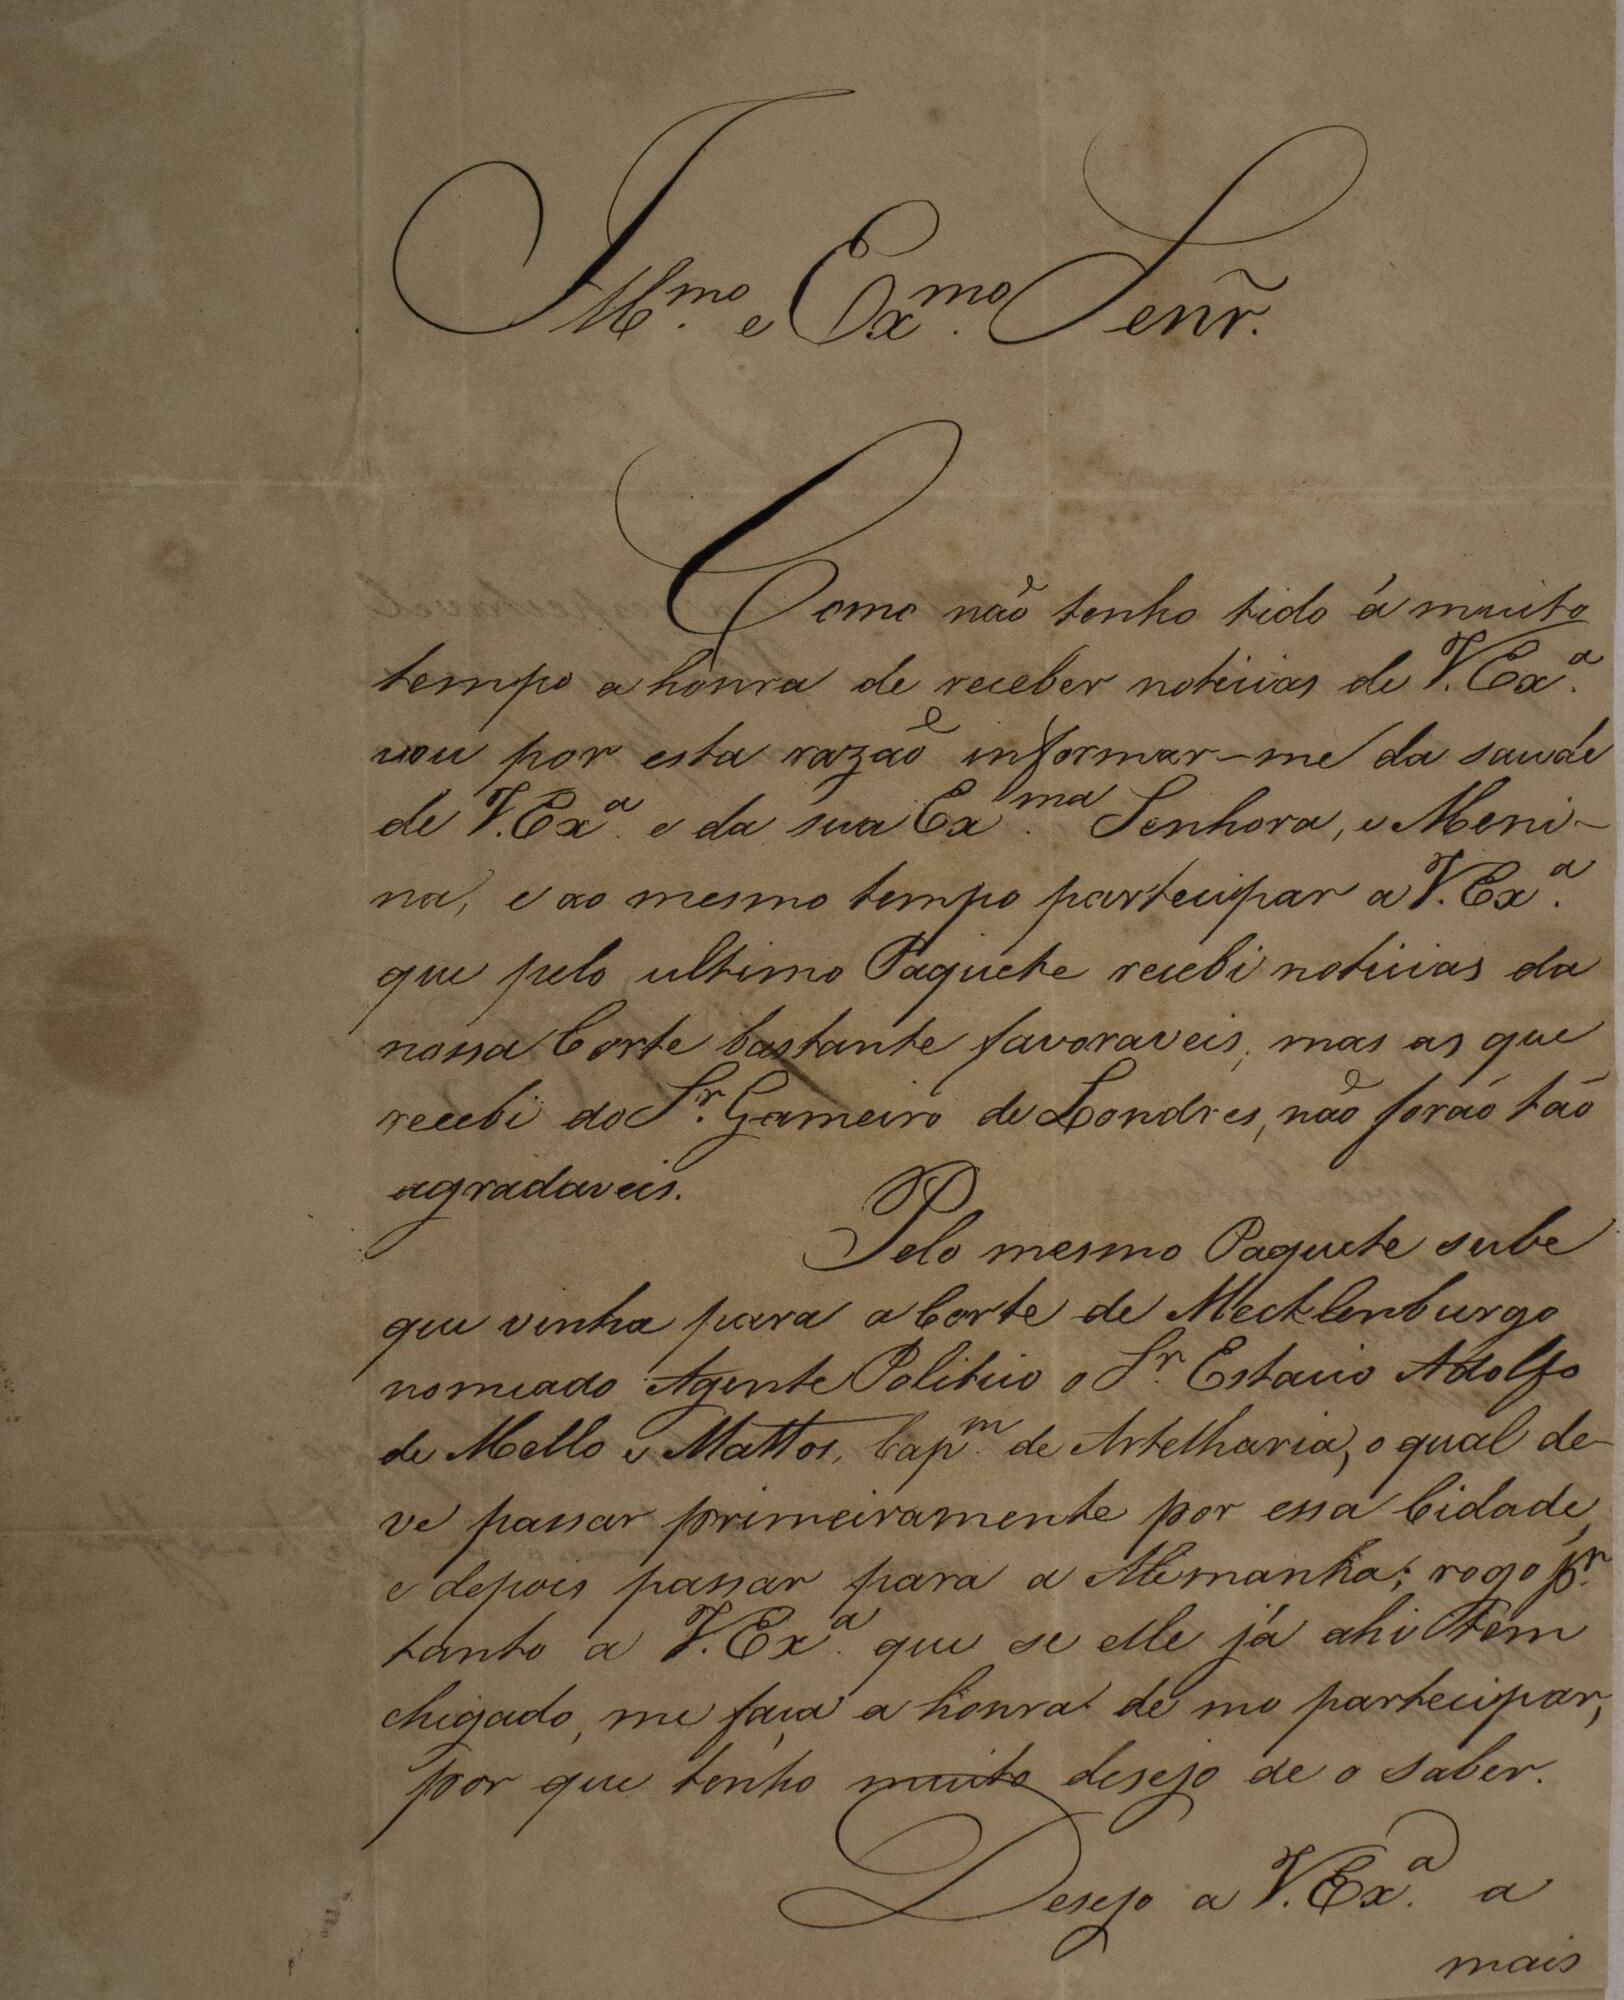 Illmo. e Exmo. Señr.
Como não tenho tido á muito
tempo a honra de receber noticias de V. Exa.
vou por esta razão informar-me da saude
de V. Exa. e da sua Exma. Senhora, e Meni-
na, e ao mesmo tempo partecipar a V. Exa.
que pelo ultimo Paquete recebi noticias da
nossa Corte bastante favoraveis, mas as que
recebi do Sr. Gameiro de Londres, não forão tão
agradaveis.
Pelo mesmo Paquete sube
que vinha para a Corte de Mecklenburgo
nomeado Agente Politico o Sr. Estacio Adolfo
de Mello e Mattos, Capm. de Artelharia, o qual de-
ve passar primeiramente por essa Cidade,
e depois passar para a Alemanha; rogo pr.
tanto a V. Exa. que se elle já ahi tem
chegado, me faça a honra de mo partecipar,
por que tenho muito desejo de o saber.
Desejo a V. Exa. a
mais